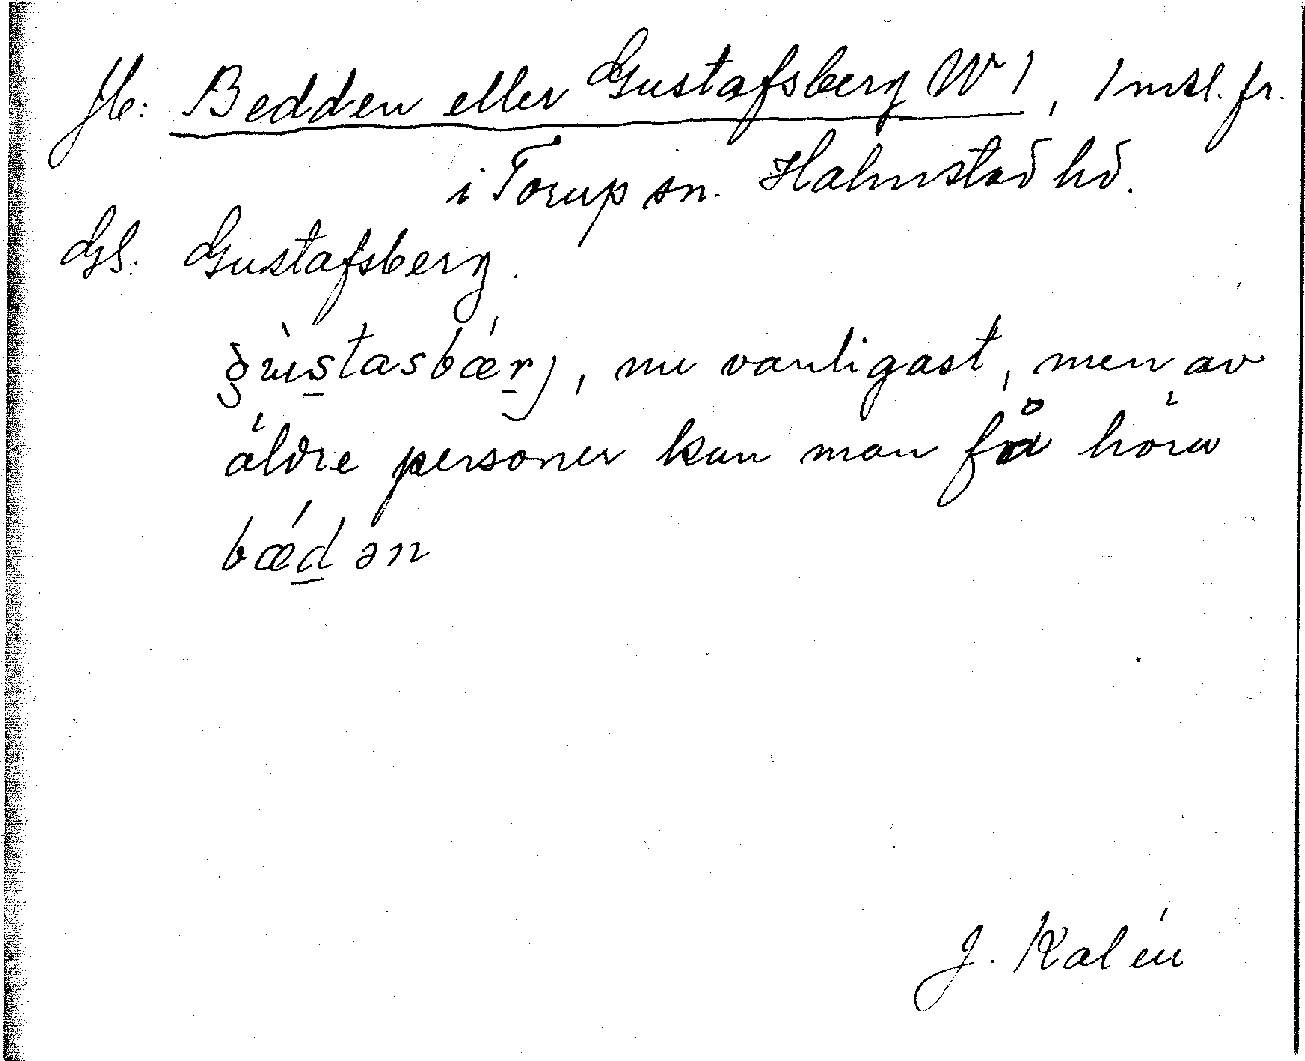 Jb: Bedden eller Gustafsberg No 1, 1 mtl. fr.
i Torup sn. Halmstad hd.
GS. Gustafsberg.
gùstasbǽrj, nu vanligast, men av
äldre personer kan man få höra
bǽdən
J. Kalén